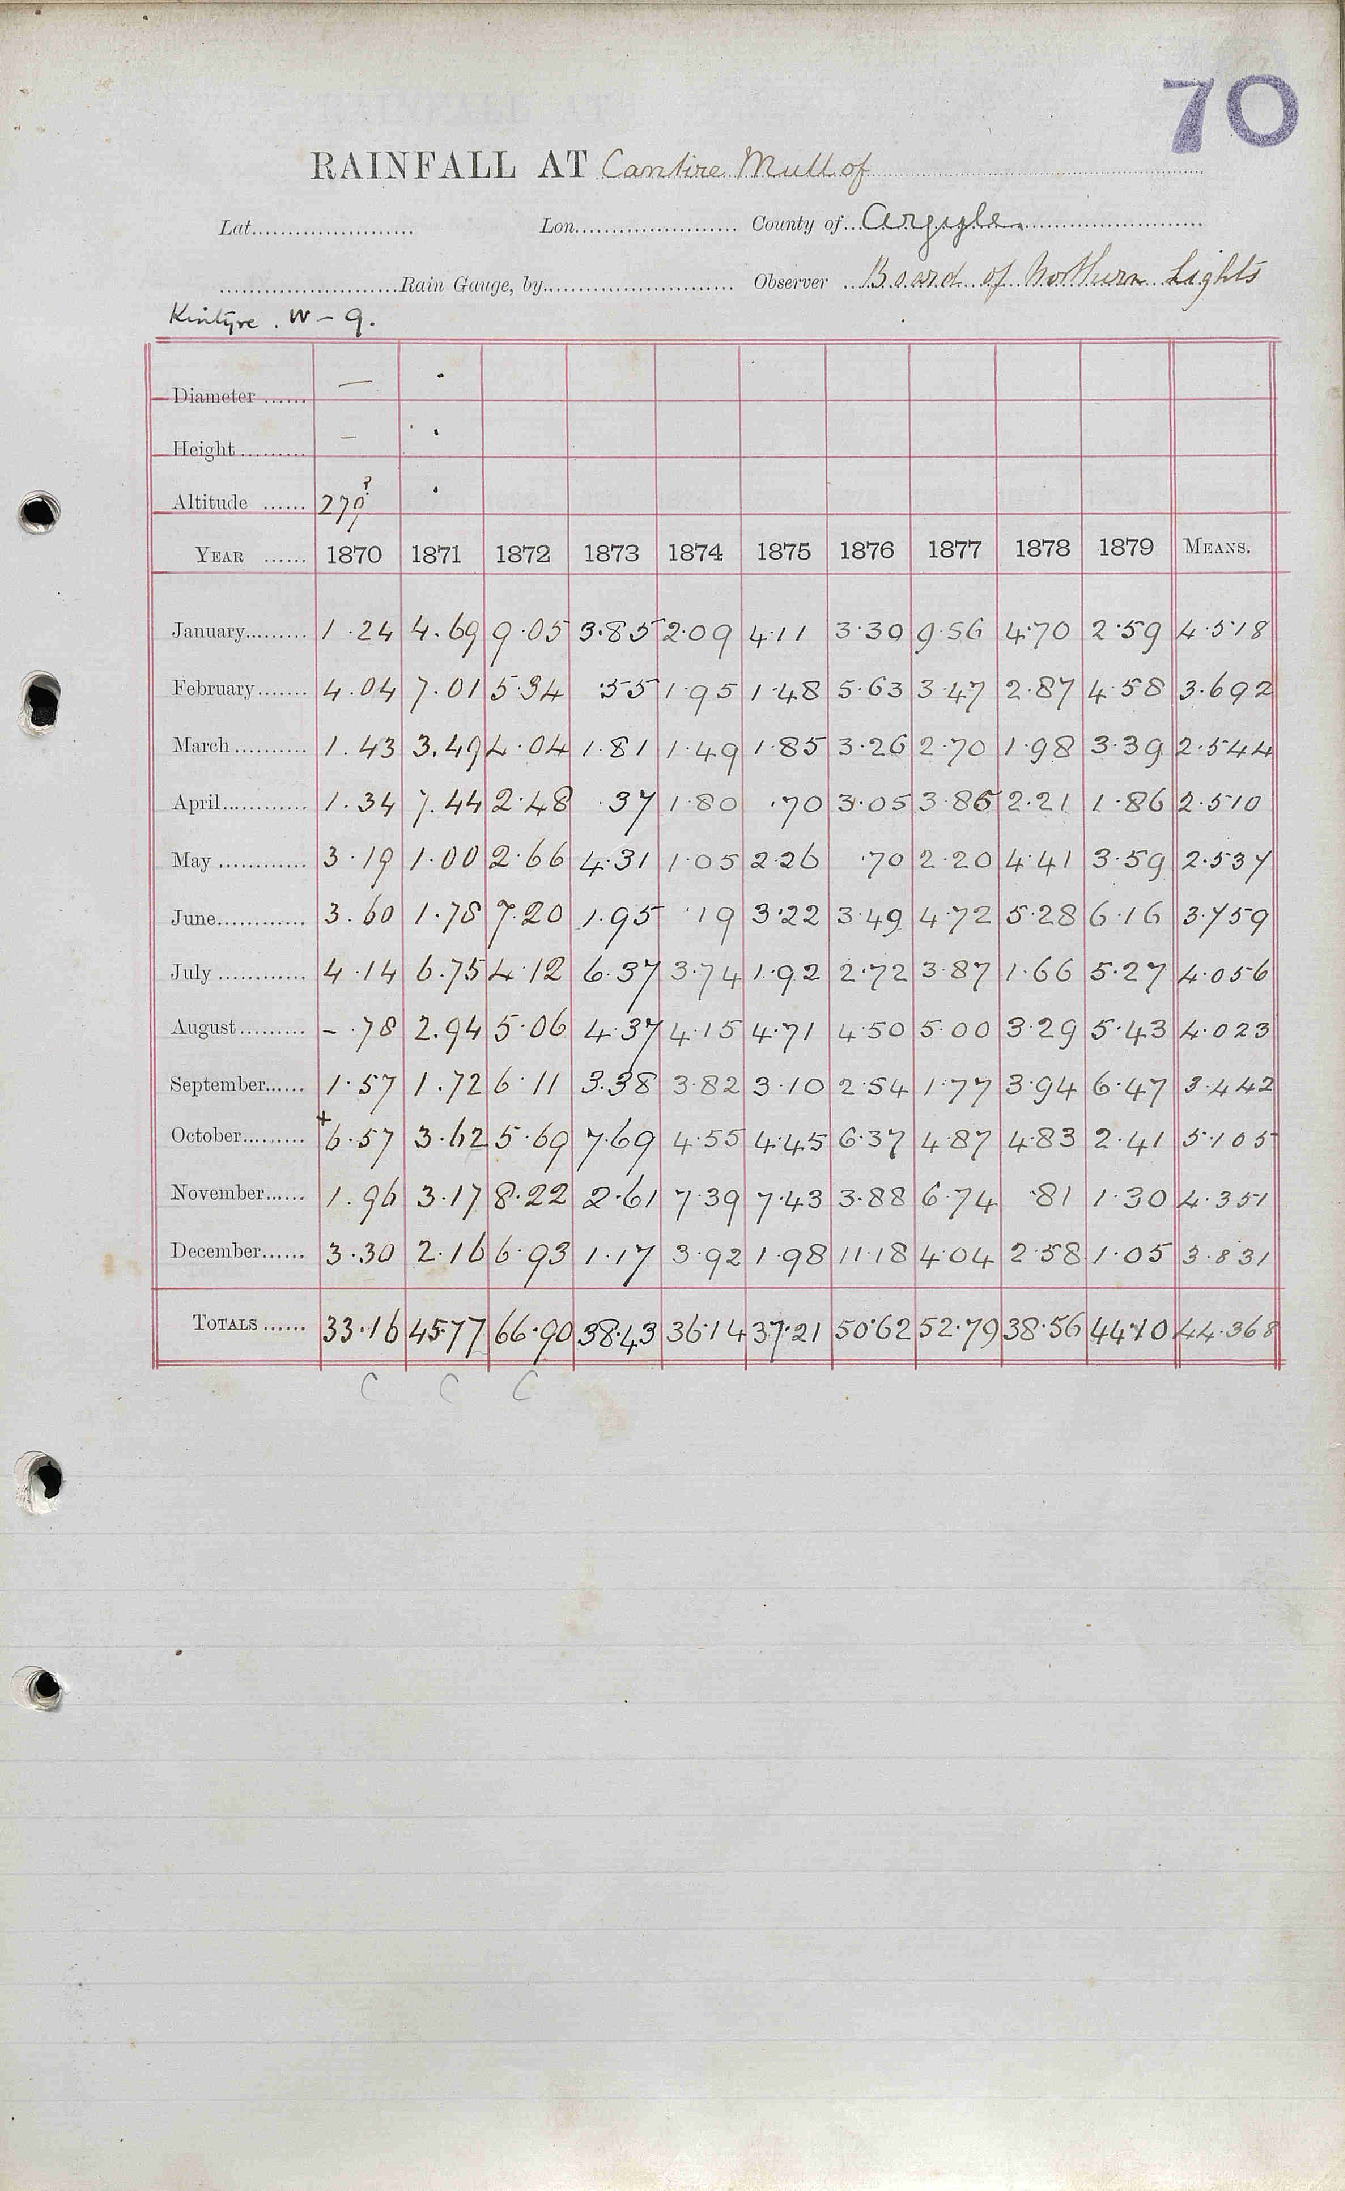 70
RAINFALL AT Cantire Mull of
Lat. Lon. County of Argyle
Rain Gauge, by Observer Board of Northern Lights
Kintyre. W - 9.
Diameter —
Height —
Altitude 279?
YEAR 1870 1871 1872 1873 1874 1875 1876 1877 1878 1879 MEANS.
January 1.24 4.69 9.05 3.85 2.09 4.11 3.39 9.56 4.70 2.59 4.518
February 4.04 7.01 5.34 .55 1.95 1.48 5.63 3.47 2.87 4.58 3.692
March 1.43 3.49 4.04 1.81 1.49 1.85 3.26 2.70 1.98 3.39 2.544
April 1.34 7.44 2.48 .37 1.80 .70 3.05 3.86 2.21 1.86 2.510
May 3.19 1.00 2.66 4.31 1.05 2.26 .70 2.20 4.41 3.59 2.537
June 3.60 1.78 7.20 1.95 .19 3.22 3.49 4.72 5.28 6.16 3.759
July 4.14 6.75 4.12 6.37 3.74 1.92 2.72 3.87 1.66 5.27 4.056
August - .78 2.94 5.06 4.37 4.15 4.71 4.50 5.00 3.29 5.43 4.023
September 1.57 1.72 6.11 3.38 3.82 3.10 2.54 1.77 3.94 6.47 3.442
October +6.57 3.62 5.69 7.69 4.55 4.45 6.37 4.87 4.83 2.41 5.105
November 1.96 3.17 8.22 2.61 7.39 7.43 3.88 6.74 .81 1.30 4.351
December 3.30 2.16 6.93 1.17 3.92 1.98 11.18 4.04 2.58 1.05 3.831
TOTALS 33.16 45.77 66.90 38.43 36.14 37.21 50.62 52.79 38.56 44.10 44.368
C C C